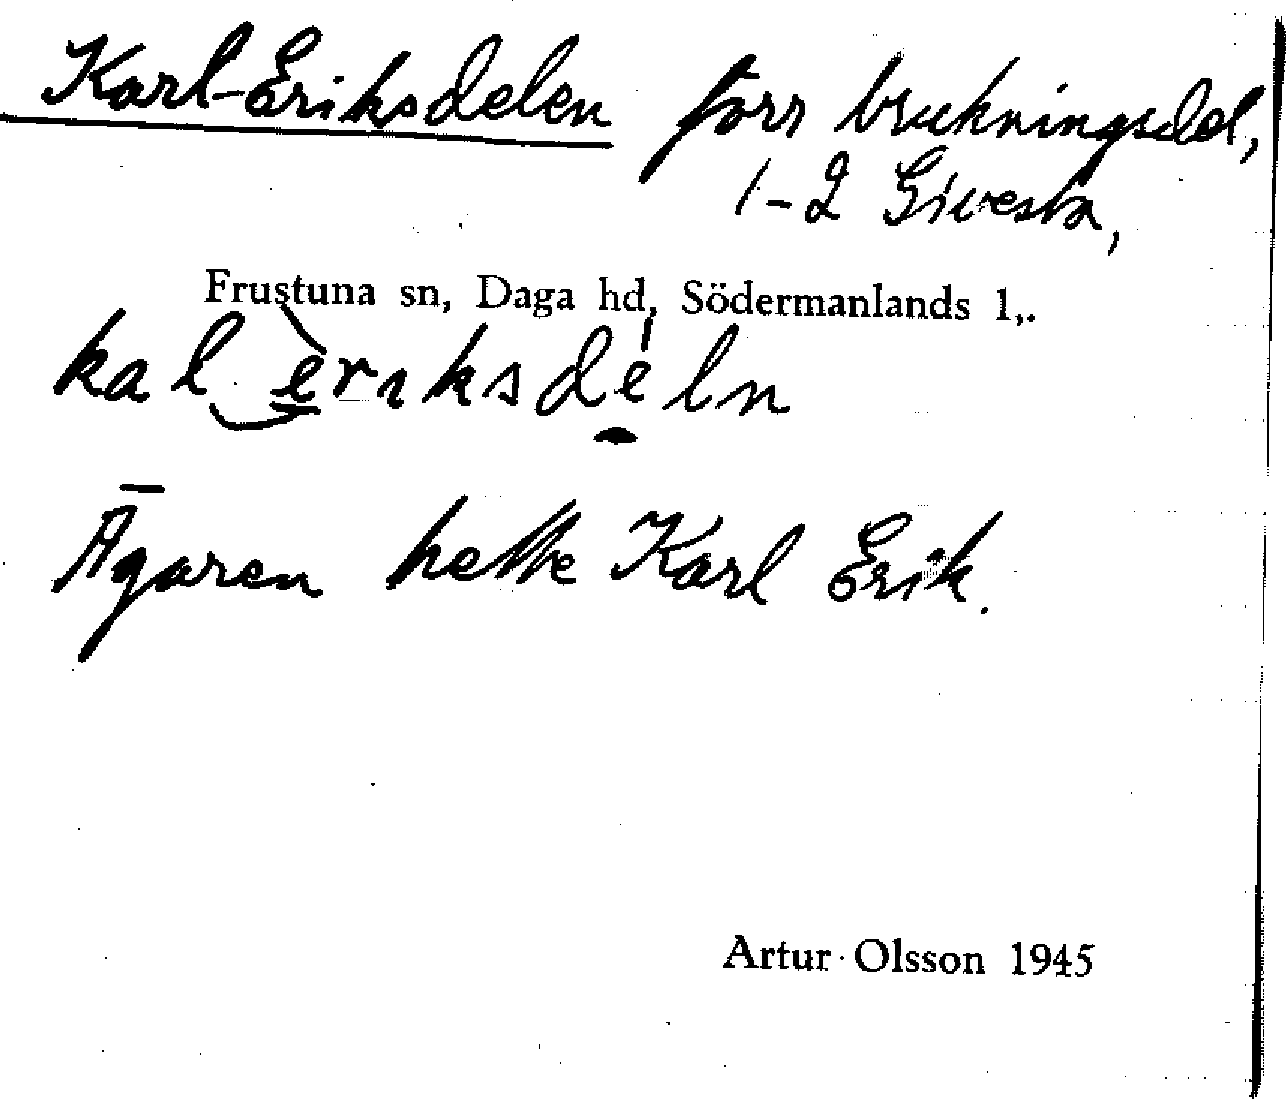 Karl-Eriksdelen förr brukningsdel,
1-2 Sivesta,
Frustuna sn, Daga hd, Södermanlands l.
kal‿èriksdéln
Ägaren hette Karl Erik.
Artur Olsson 1945